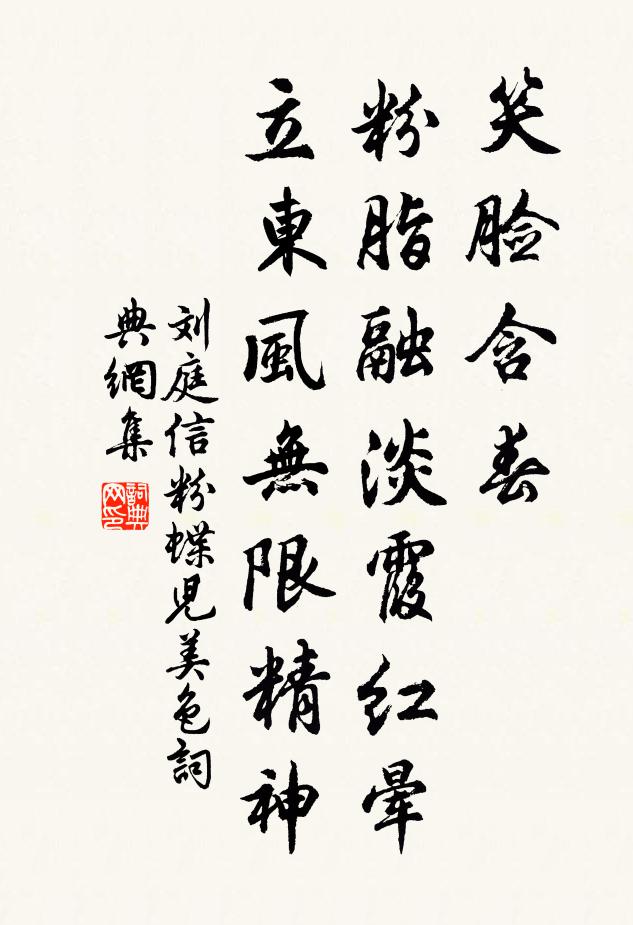 笑脸含春
粉脂融淡霞红晕
立東風無限精神
刘庭信粉蝶児美色詞
典網集
詞典网印